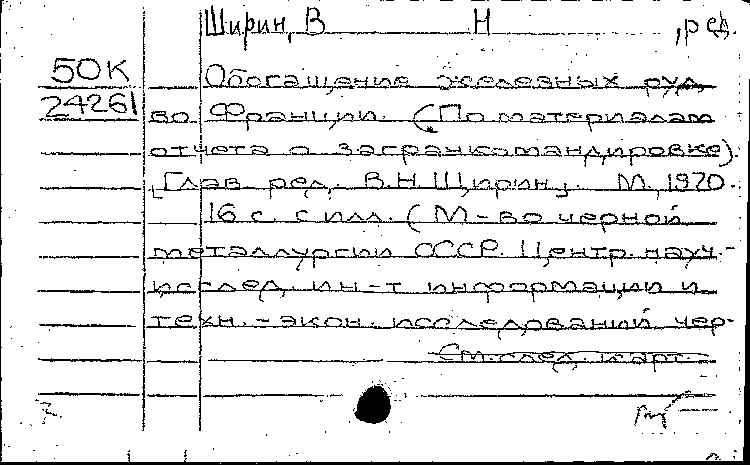 Ширин, В Н , ред.
50К
24261
Обогащение железных руд
во Франции. (По материалам
отчета о загранкомандировке).
[Глав. ред. В.Н. Ширин]. М., 1970.
16 с. с илл. (М-во черной
металлургии СССР. Центр. науч.-
исслед. ин-т информации и
техн.-экон. исследований чер-
См. след. карт.